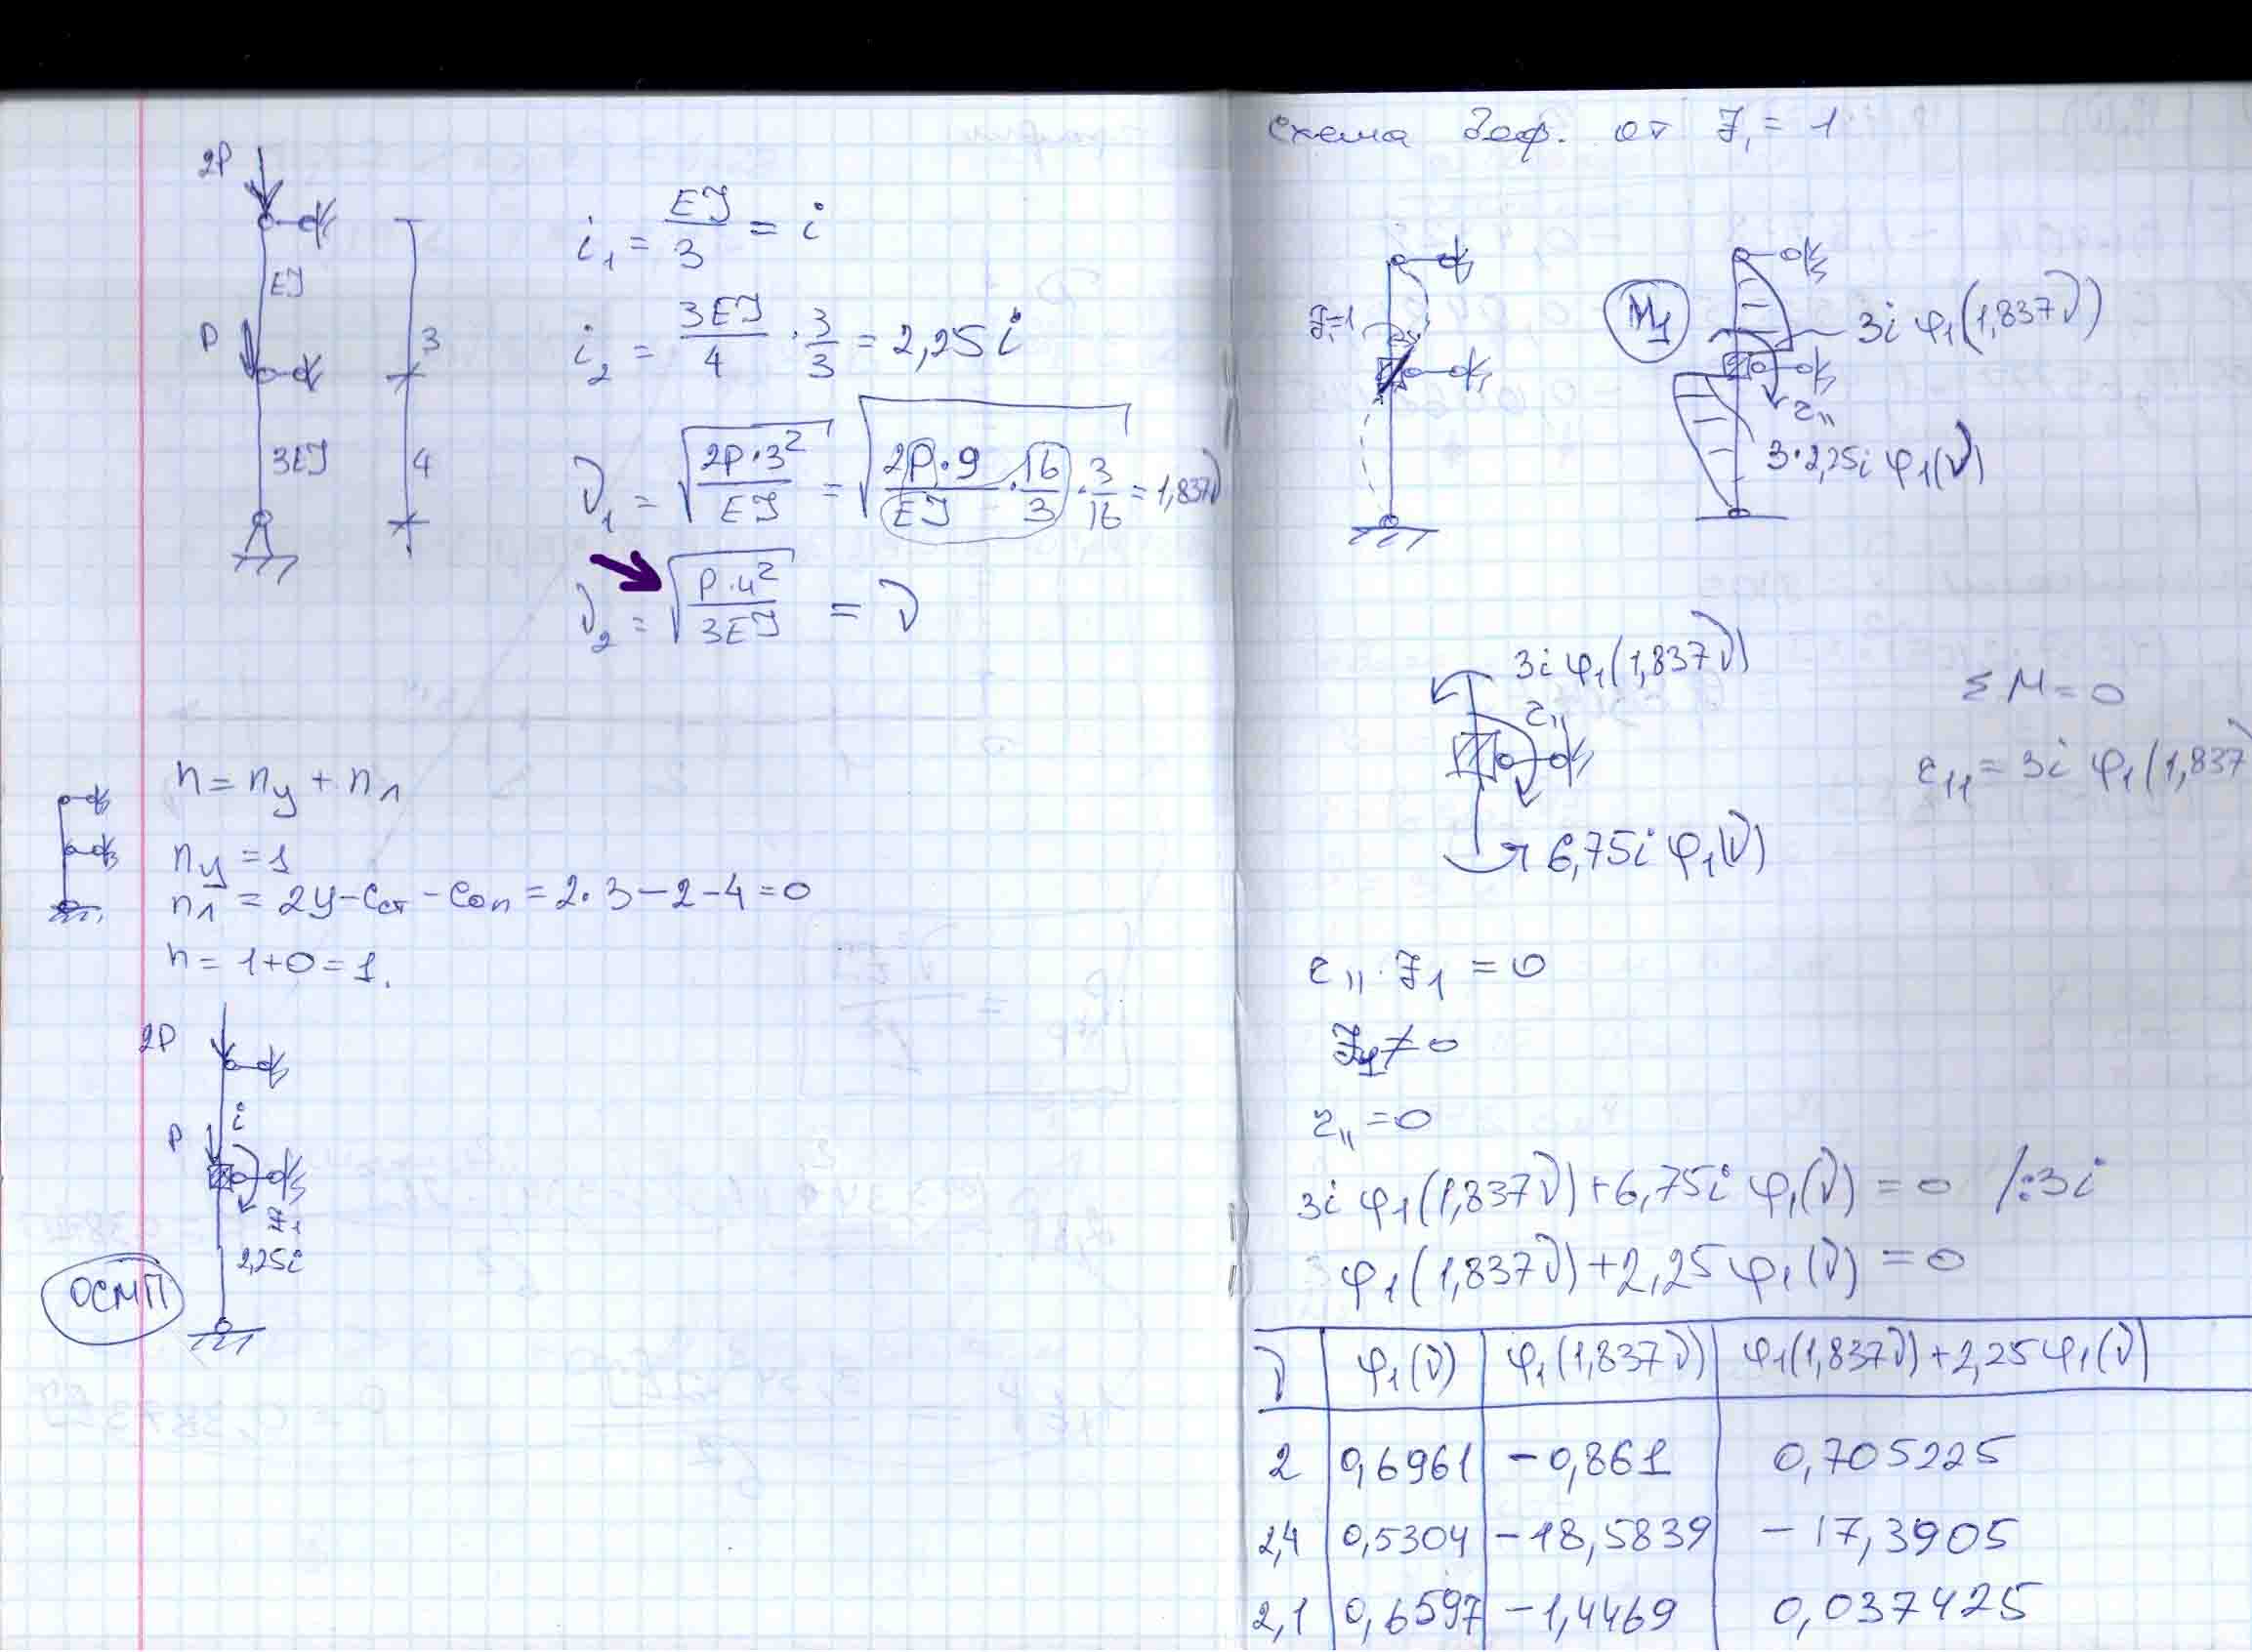 2P
EJ
P
3EJ
3
4
i₁ = EJ/3 = i
i₂ = 3EJ/4 · 3/3 = 2,25i
ν₁ = √(2P·3²/EJ) = √(2P·9/EJ · 16/3 · 3/16) = 1,837ν
ν₂ = √(P·4²/3EJ) = ν
n = nу + nл
nу = 1
nл = 2У - Сст - Соп = 2·3 - 2 - 4 = 0
n = 1+0 = 1.
2P
i
P
Z₁
2,25i
ОСМП
схема деф. от Z₁ = 1
Z₁=1
M₁
3i φ₁(1,837ν)
r₁₁
3·2,25i φ₁(ν)
3i φ₁(1,837ν)
r₁₁
6,75i φ₁(ν)
ΣM = 0
r₁₁ = 3i φ₁(1,837
r₁₁ · Z₁ = 0
Z₁ ≠ 0
r₁₁ = 0
3i φ₁(1,837ν) + 6,75i φ₁(ν) = 0 /:3i
φ₁(1,837ν) + 2,25 φ₁(ν) = 0
ν φ₁(ν) φ₁(1,837ν) φ₁(1,837ν)+2,25φ₁(ν)
2 0,6961 -0,861 0,705225
2,4 0,5304 -18,5839 -17,3905
2,1 0,6597 -1,4469 0,037425